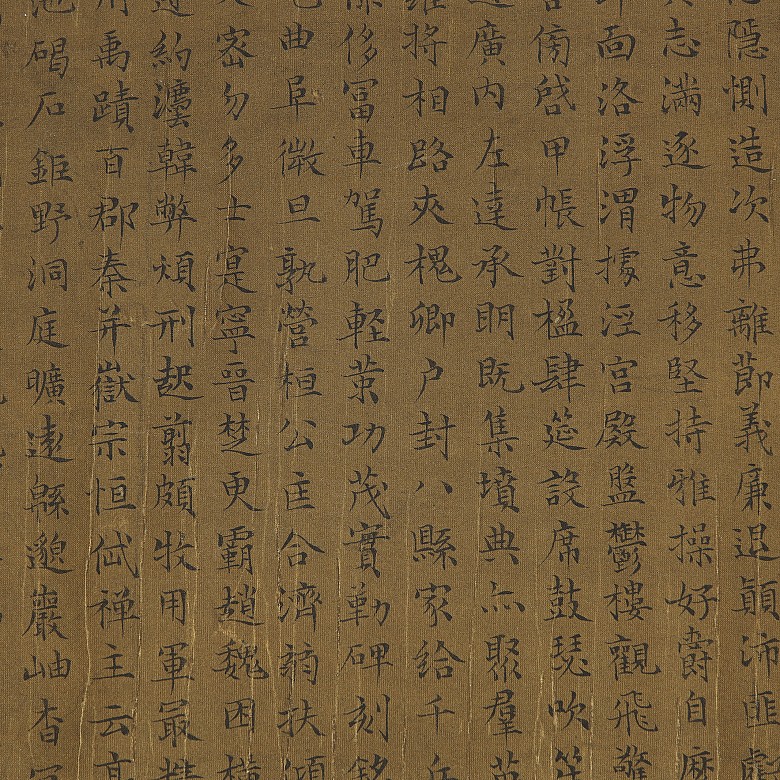 隱惻造次弗離節義廉退顛沛匪虧
志滿逐物意移堅持雅操好爵自縻
面洛浮渭據涇宮殿盤鬱樓觀飛驚
傍啓甲帳對楹肆筵設席鼓瑟吹笙
廣內左達承明既集墳典亦聚羣英
將相路夾槐卿户封八縣家給千兵
侈冨車駕肥軽策功茂實勒碑刻銘
曲阜微旦孰營桓公匡合濟弱扶傾
密勿多士寔寧晉楚更霸趙魏困橫
約灋韓弊煩刑起翦頗牧用軍最精
禹蹟百郡秦并嶽宗恒岱禅主云亭
池碣石鉅野洞庭曠遠緜邈巖岫杳冥